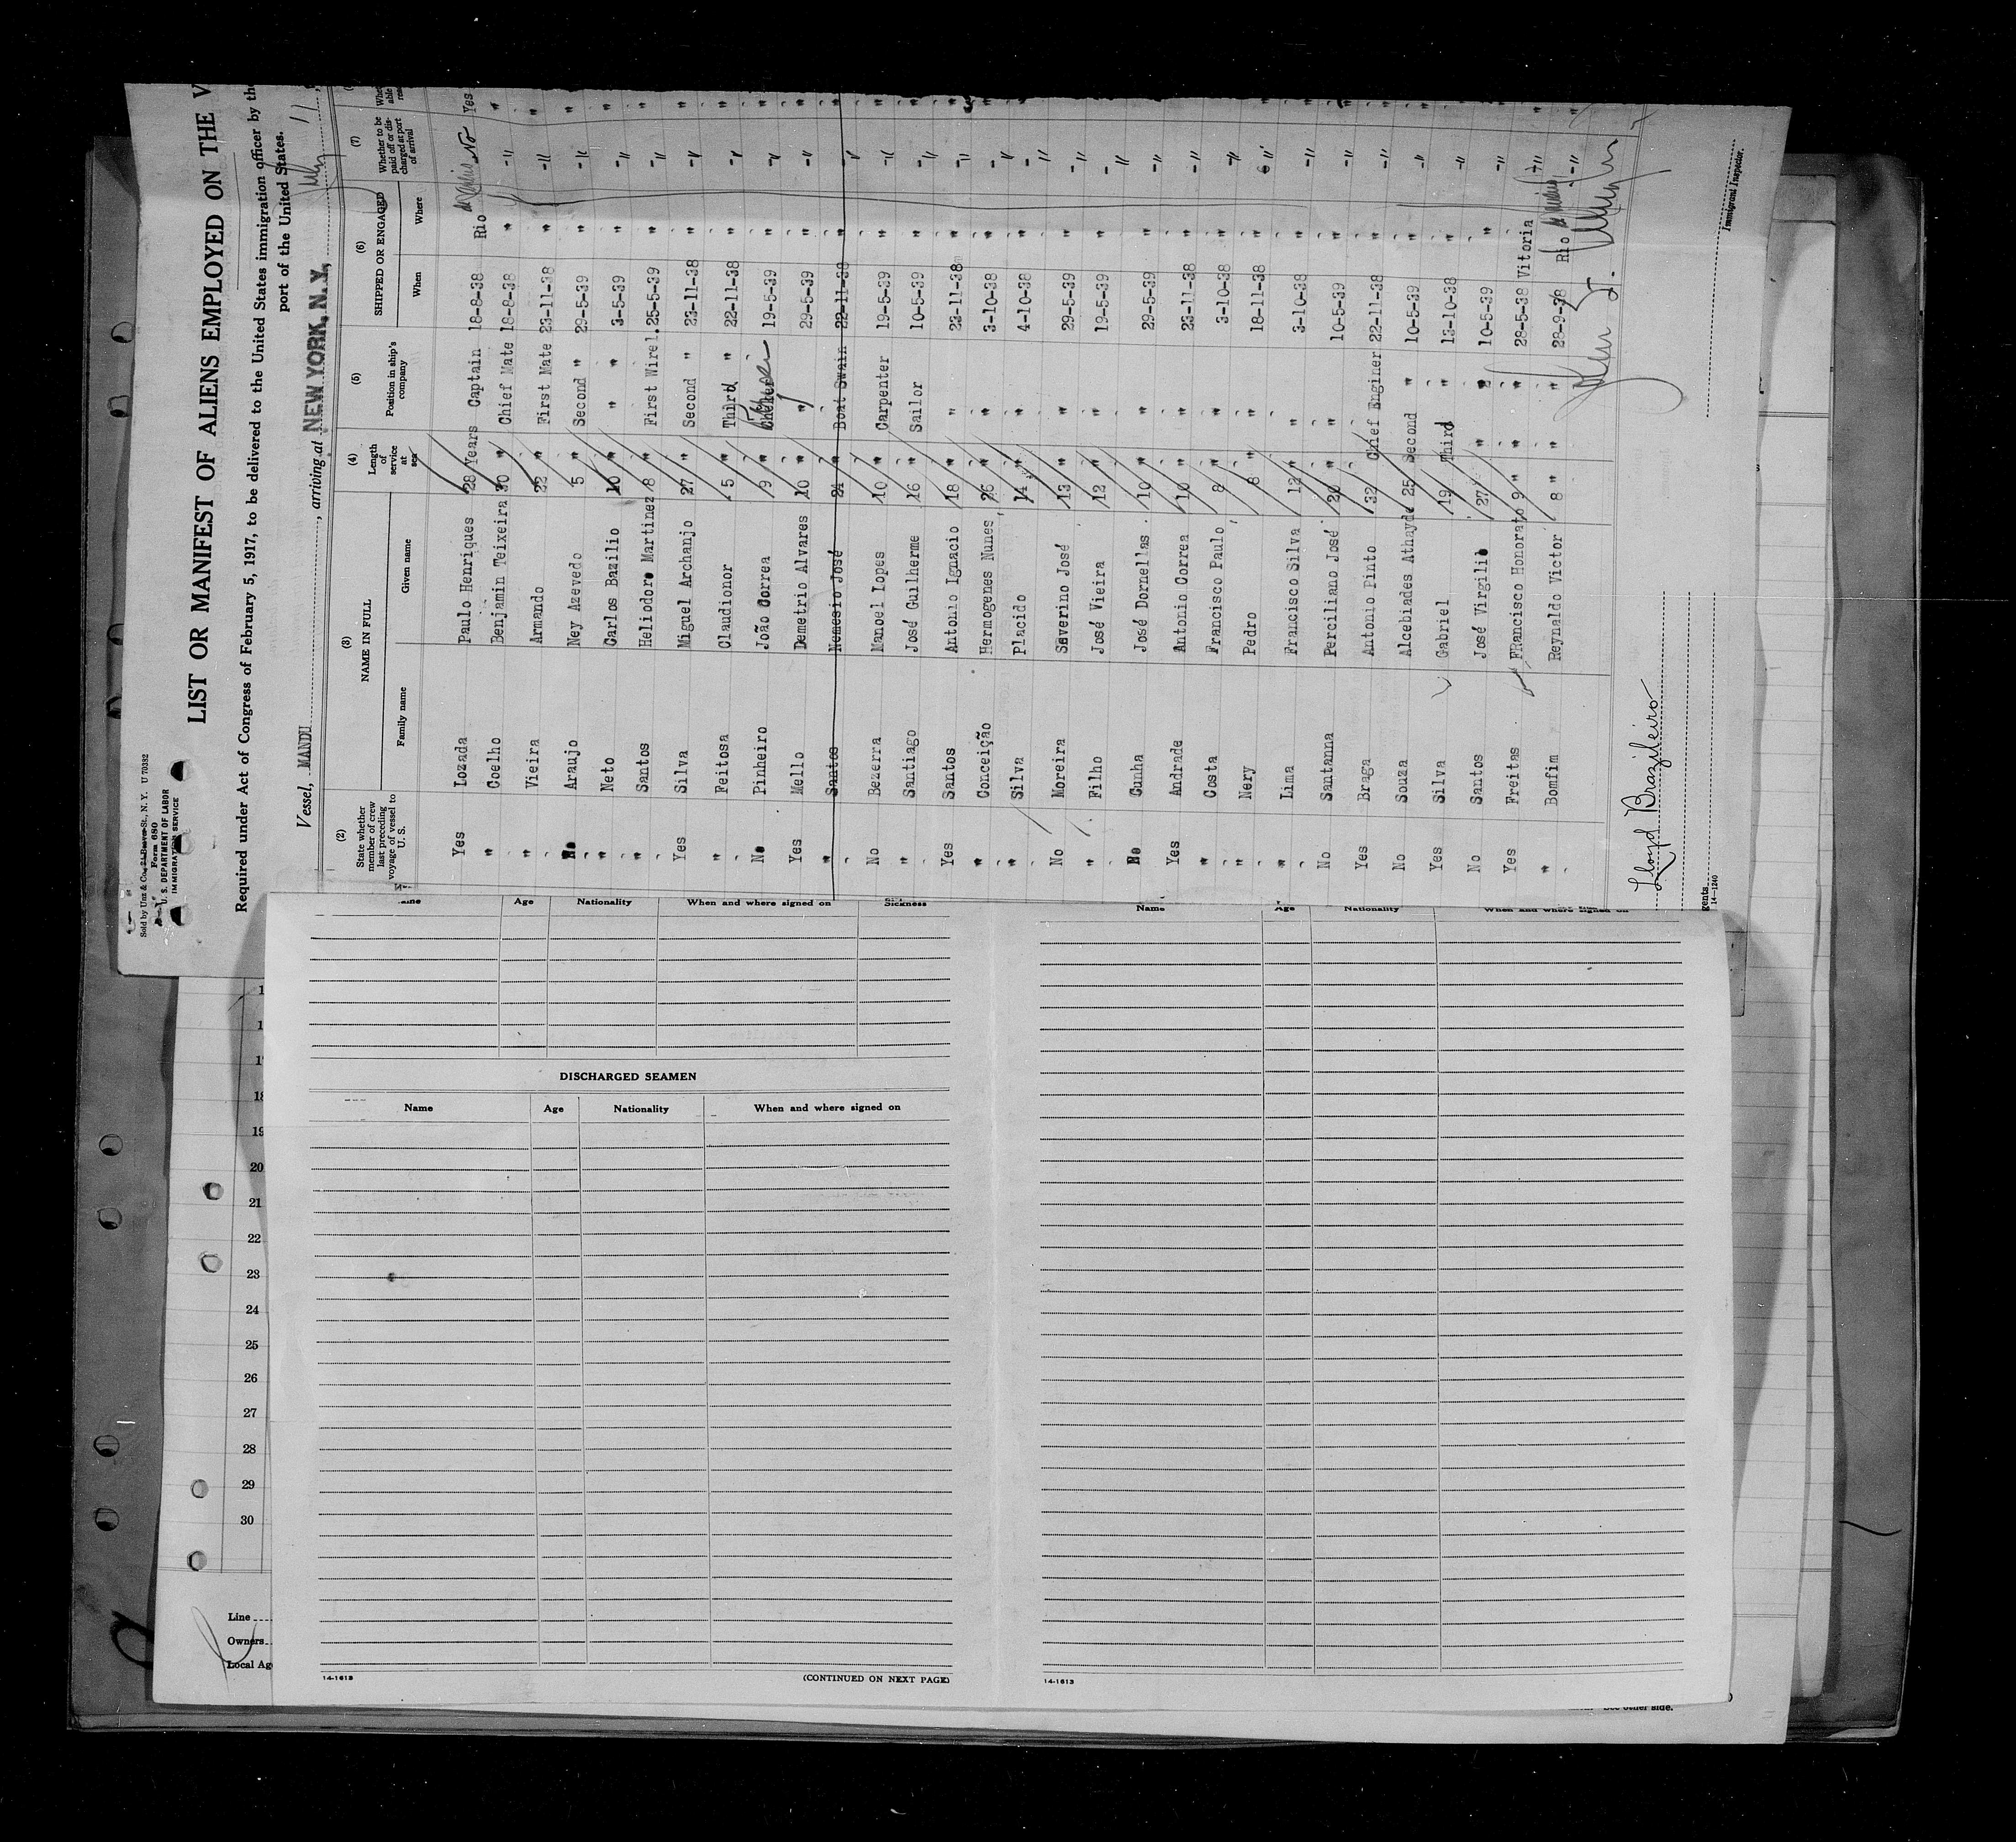 Sold by Unz & Co., 24 Beaver St., N. Y. U 70382
Form 680
U. S. DEPARTMENT OF LABOR
IMMIGRATION SERVICE
LIST OR MANIFEST OF ALIENS EMPLOYED ON THE V
Required under Act of Congress of February 5, 1917, to be delivered to the United States immigration officer by the
port of the United States.
Vessel, MANDU , arriving at NEW YORK, N.Y., July 11
(2) (3) (4) (5) (6) (7)
State whether member of crew last preceding voyage of vessel to U. S. NAME IN FULL Length of service at sea Position in ship's company SHIPPED OR ENGAGED Whether to be paid off or discharged at port of arrival
Family name Given name When Where
Yes Lozada Paulo Henriques 28 Years Captain 18-8-38 Rio de Janeiro No Yes
" Coelho Benjamin Teixeira 30 " Chief Mate 18-8-38 " -"- "
" Vieira Armando 22 " First Mate 23-11-38 " -"- "
No Araujo Ney Azevedo 5 " Second " 29-5-39 " -"- "
" Neto Carlos Bazilio 10 " " " 3-5-39 " -"- "
" Santos Heliodoro Martinez 8 " First Wirel. 25-5-39 " -"- "
Yes Silva Miguel Archanjo 27 " Second " 23-11-38 " -"- "
" Feitosa Claudionor 5 " Third " 22-11-38 " -"- "
No Pinheiro João Correa 9 " 19-5-39 " -"- "
Yes Mello Demetrio Alvares 10 " " 29-5-39 " -"- "
" Santos Nemesio José 24 " Boat Swain 22-11-38 " " "
No Bezerra Manoel Lopes 10 " Carpenter 19-5-39 " -"- "
" Santiago José Guilherme 16 " Sailor 10-5-39 " -"- "
Yes Santos Antonio Ignacio 18 " " 23-11-38 " -"- "
" Conceição Hermogenes Nunes 26 " " 3-10-38 " -"- "
" Silva Placido 14 " " 4-10-38 " -"- "
No Moreira Severino José 13 " " 29-5-39 " -"-
" Filho José Vieira 12 " " 19-5-39 " -"-
No Cunha José Dornellas 10 " " 29-5-39 " -"-
Yes Andrade Antonio Correa 10 " " 23-11-38 " -"-
" Costa Francisco Paulo 8 " " 3-10-38 " -"-
" Nery Pedro 8 " " 18-11-38 " " "
" Lima Francisco Silva 12 " " 3-10-38 " -"- "
No Santanna Perciliano José 20 " " 10-5-39 " -"- "
Yes Braga Antonio Pinto 32 " Chief Enginer 22-11-38 " -"- "
No Souza Alcebiades Athayde 25 Second " 10-5-39 " -"- "
Yes Silva Gabriel 19 Third " 13-10-38 " -"- "
No Santos José Virgilio 27 " " 10-5-39 " -"- "
Yes Freitas FRancisco Honorato 9 " " " 28-5-38 Vitoria -"- "
" Bomfim Reynaldo Victor 8 " " " 28-9-38 Rio de Janeiro -"- "
John J.
Lloyd Brazileiro
Immigrant Inspector.
gents
14-1240
Age Nationality When and where signed on Sickness
DISCHARGED SEAMEN
Name Age Nationality When and where signed on
14-1613
(CONTINUED ON NEXT PAGE)
Name Age Nationality When and where signed on
14-1613
18
19
20
21
22
23
24
25
26
27
28
29
30
Line
Owners
Local Ag
See other side.